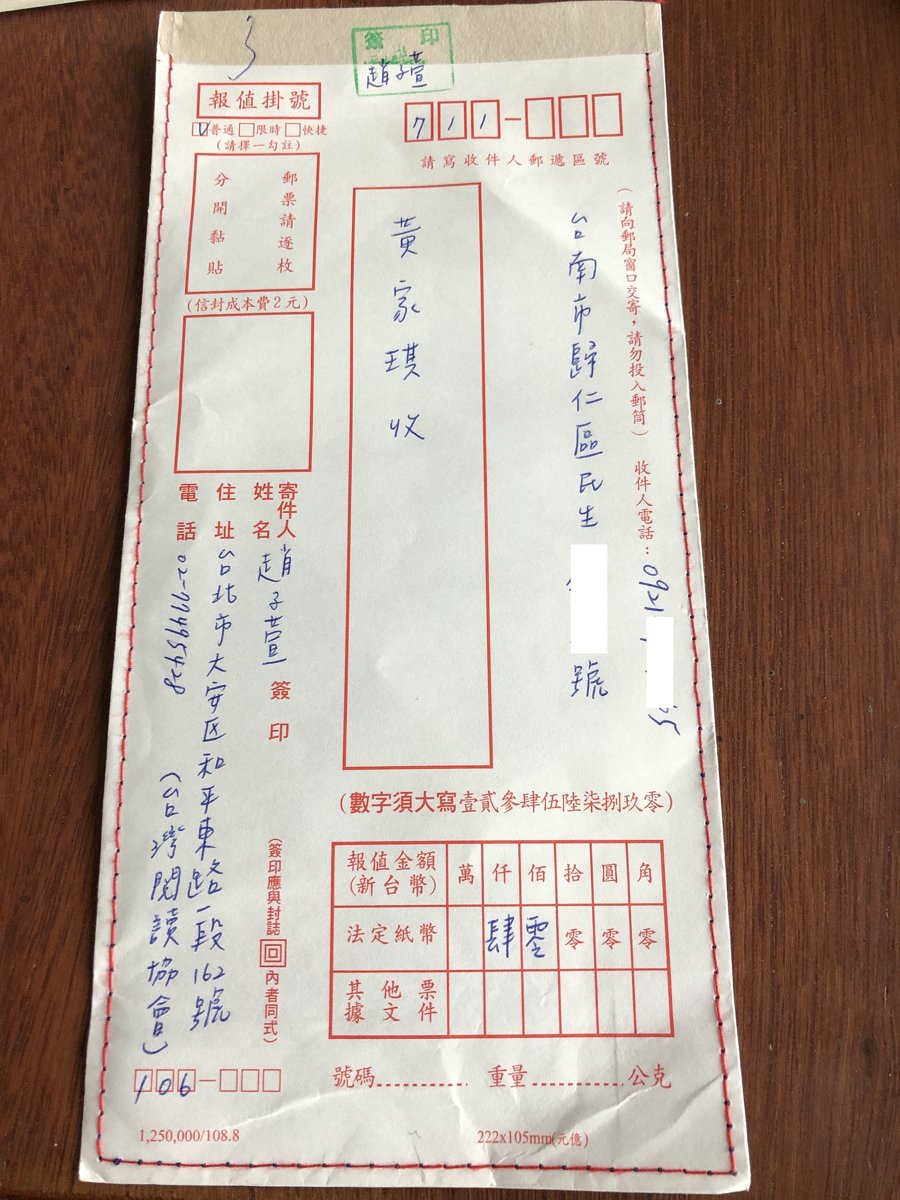 簽印
趙子萱
報值掛號
V普通 限時 快捷
(請擇一勾註)
郵票請逐枚
分開黏貼
(信封成本費2元)
711-
請寫收件人郵遞區號
(請向郵局窗口交寄，請勿投入郵筒) 收件人電話：0921
台南市歸仁區民生
號
黃家琪收
寄件人
姓名 趙子萱 簽印
住址 台北市大安区和平東路一段162號
電話 02-77495428
(台灣閱讀協會)
(簽印應與封誌回內者同式)
106-
(數字須大寫壹貳參肆伍陸柒捌玖零)
報值金額(新台幣) 萬 仟 佰 拾 圓 角
法定紙幣 肆 零 零 零 零
其他票據文件
號碼............ 重量............公克
1,250,000/108.8
222x105mm(元億)